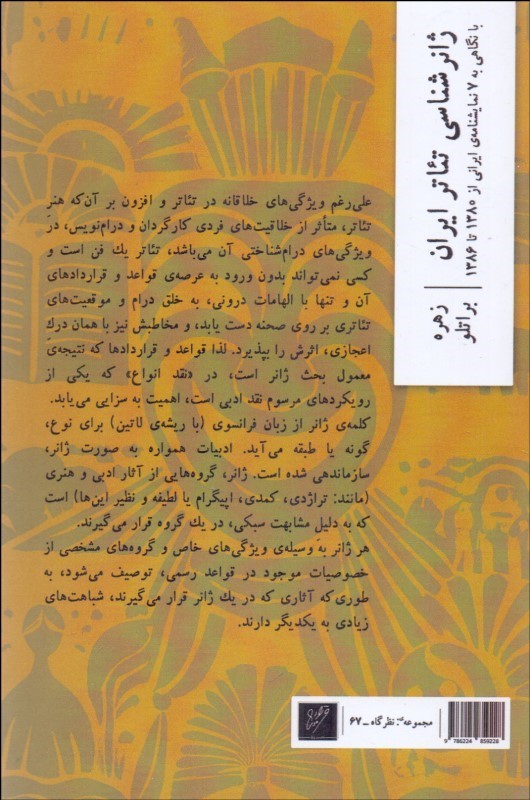 ژانرشناسی تئاتر ایران
با نگاهی به ۷ نمایشنامه‌ی ایرانی از ۱۳۸۰ تا ۱۳۸۶
زهره
براتلو
علی‌رغم ویژگی‌های خلاقانه در تئاتر و افزون بر آن‌که هنر
تئاتر، متأثر از خلاقیت‌های فردی کارگردان و درام‌نویس، در
ویژگی‌های درام‌شناختی آن می‌باشد، تئاتر یك فن است و
کسی نمی‌تواند بدون ورود به عرصه‌ی قواعد و قراردادهای
آن و تنها با الهامات درونی، به خلق درام و موقعیت‌های
تئاتری بر روی صحنه دست یابد، و مخاطبش نیز با همان درك
اعجازی، اثرش را بپذیرد. لذا قواعد و قراردادها که نتیجه‌ی
معمول بحث ژانر است، در «نقد انواع» که یکی از
رویکردهای مرسوم نقد ادبی است، اهمیت به سزایی می‌یابد.
کلمه‌ی ژانر از زبان فرانسوی (با ریشه‌ی لاتین) برای نوع،
گونه یا طبقه می‌آید. ادبیات همواره به صورت ژانر،
سازماندهی شده است. ژانر، گروه‌هایی از آثار ادبی و هنری
(مانند: تراژدی، کمدی، اپیگرام یا لطیفه و نظیر این‌ها) است
که به دلیل مشابهت سبکی، در یك گروه قرار می‌گیرند.
هر ژانر به وسیله‌ی ویژگی‌های خاص و گروه‌های مشخصی از
خصوصیات موجود در قواعد رسمی، توصیف می‌شود، به
طوری‌که آثاری که در یك ژانر قرار می‌گیرند، شباهت‌های
زیادی به یکدیگر دارند.
مجموعه: نظرگاه ـ ۶۷
9 786234 859228